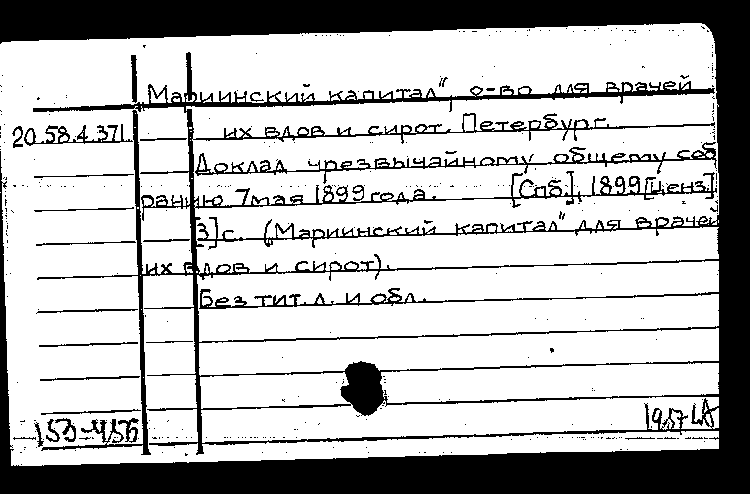 „Мариинский капитал", о-во для врачей
20.58.4.371. их вдов и сирот. Петербург.
Доклад чрезвычайному общему соб
ранию 7 мая 1899 года. [Спб.], 1899 [ценз.]
[3] с. („Мариинский капитал" для врачей
их вдов и сирот).
Без тит. л. и обл.
153-456